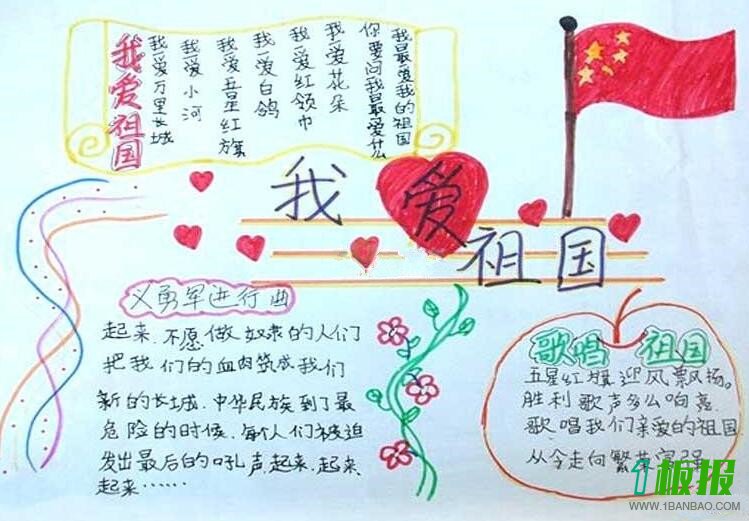 我爱祖国
我爱万里长城
我爱小河
我爱五星红旗
我爱白鸽
我爱红领巾
我爱花朵
你要问我最爱什么
我最爱我的祖国
我爱祖国
义勇军进行曲
起来、不愿做奴隶的人们
把我们的血肉筑成我们
新的长城、中华民族到了最
危险的时候、每个人们被迫
发出最后的吼声起来、起来、
起来……
歌唱 祖国
五星红旗迎风飘扬。
胜利歌声多么响亮
歌唱我们亲爱的祖国
从今走向繁荣富强
1板报
WWW.1BANBAO.COM